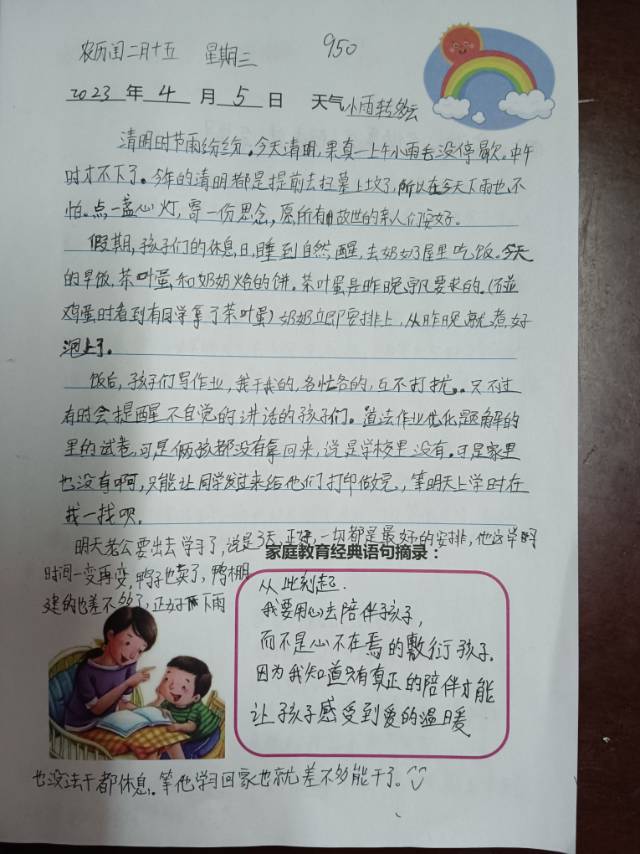 农历闰二月十五 星期三 950
2023 年 4 月 5 日 天气 小雨转多云
清明时节雨纷纷。今天清明,果真一上午小雨毛没停歇,中午
时才不下了。今年的清明都是提前去扫墓上坟了,所以在今天下雨也不
怕。点一盏心灯,寄一份思念,愿所有故世的亲人们安好。
假期,孩子们的休息日,睡到自然醒,去奶奶屋里吃饭。今天
的早饭,茶叶蛋和奶奶烙的饼。茶叶蛋是昨晚要求的。(碰
鸡蛋时看到有同学拿了茶叶蛋)奶奶立即安排上,从昨晚就煮好
泡上了。
饭后,孩子们写作业,我干我的,各忙各的,互不打扰。只不过
有时会提醒不自觉的讲话的孩子们。道法作业优化题解的
里的试卷,可是俩孩都没有拿回来,说是学校里没有。可是家里
也没有啊,只能让同学发过来给他们打印做完,等明天上学时在
找一找呗。
明天老公要出去学习了,说是3天,正好,一切都是最好的安排,他这学习
家庭教育经典语句摘录:
时间一变再变,鸭子也卖了,鸭棚
建的也差不多了,正好下雨
从此刻起.
我要用心去陪伴孩子,
而不是心不在焉的敷衍孩子.
因为我知道只有真正的陪伴才能
让孩子感受到爱的温暖
也没法干都休息。等他学习回家也就差不多能干了。